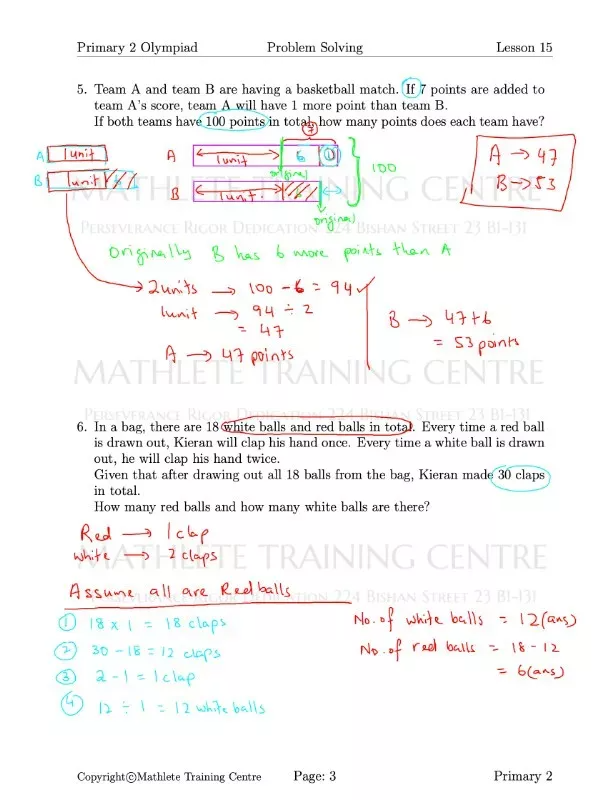 Primary 2 Olympiad Problem Solving Lesson 15
5. Team A and team B are having a basketball match. If 7 points are added to
team A's score, team A will have 1 more point than team B.
If both teams have 100 points in total, how many points does each team have?
7
A 1 unit
B 1 unit
A 1 unit 6 1
original
B 1 unit
original
100
A → 47
B → 53
MATHLETE TRAINING CENTRE
PERSEVERANCE RIGOR DEDICATION 224 BISHAN STREET 23 B1-131
Originally B has 6 more points than A
2 units → 100 - 6 = 94
1 unit → 94 ÷ 2
= 47
A → 47 points
B → 47+6
= 53 points
MATHLETE TRAINING CENTRE
PERSEVERANCE RIGOR DEDICATION 224 BISHAN STREET 23 B1-131
6. In a bag, there are 18 white balls and red balls in total. Every time a red ball
is drawn out, Kieran will clap his hand once. Every time a white ball is drawn
out, he will clap his hand twice.
Given that after drawing out all 18 balls from the bag, Kieran made 30 claps
in total.
How many red balls and how many white balls are there?
Red → 1 clap
white → 2 claps
MATHLETE TRAINING CENTRE
Assume all are Red balls
PERSEVERANCE RIGOR DEDICATION 224 BISHAN STREET 23 B1-131
① 18 x 1 = 18 claps
② 30 - 18 = 12 claps
③ 2 - 1 = 1 clap
④ 12 ÷ 1 = 12 white balls
No. of white balls = 12 (ans)
No. of red balls = 18 - 12
= 6 (ans)
Copyright©Mathlete Training Centre Page: 3 Primary 2